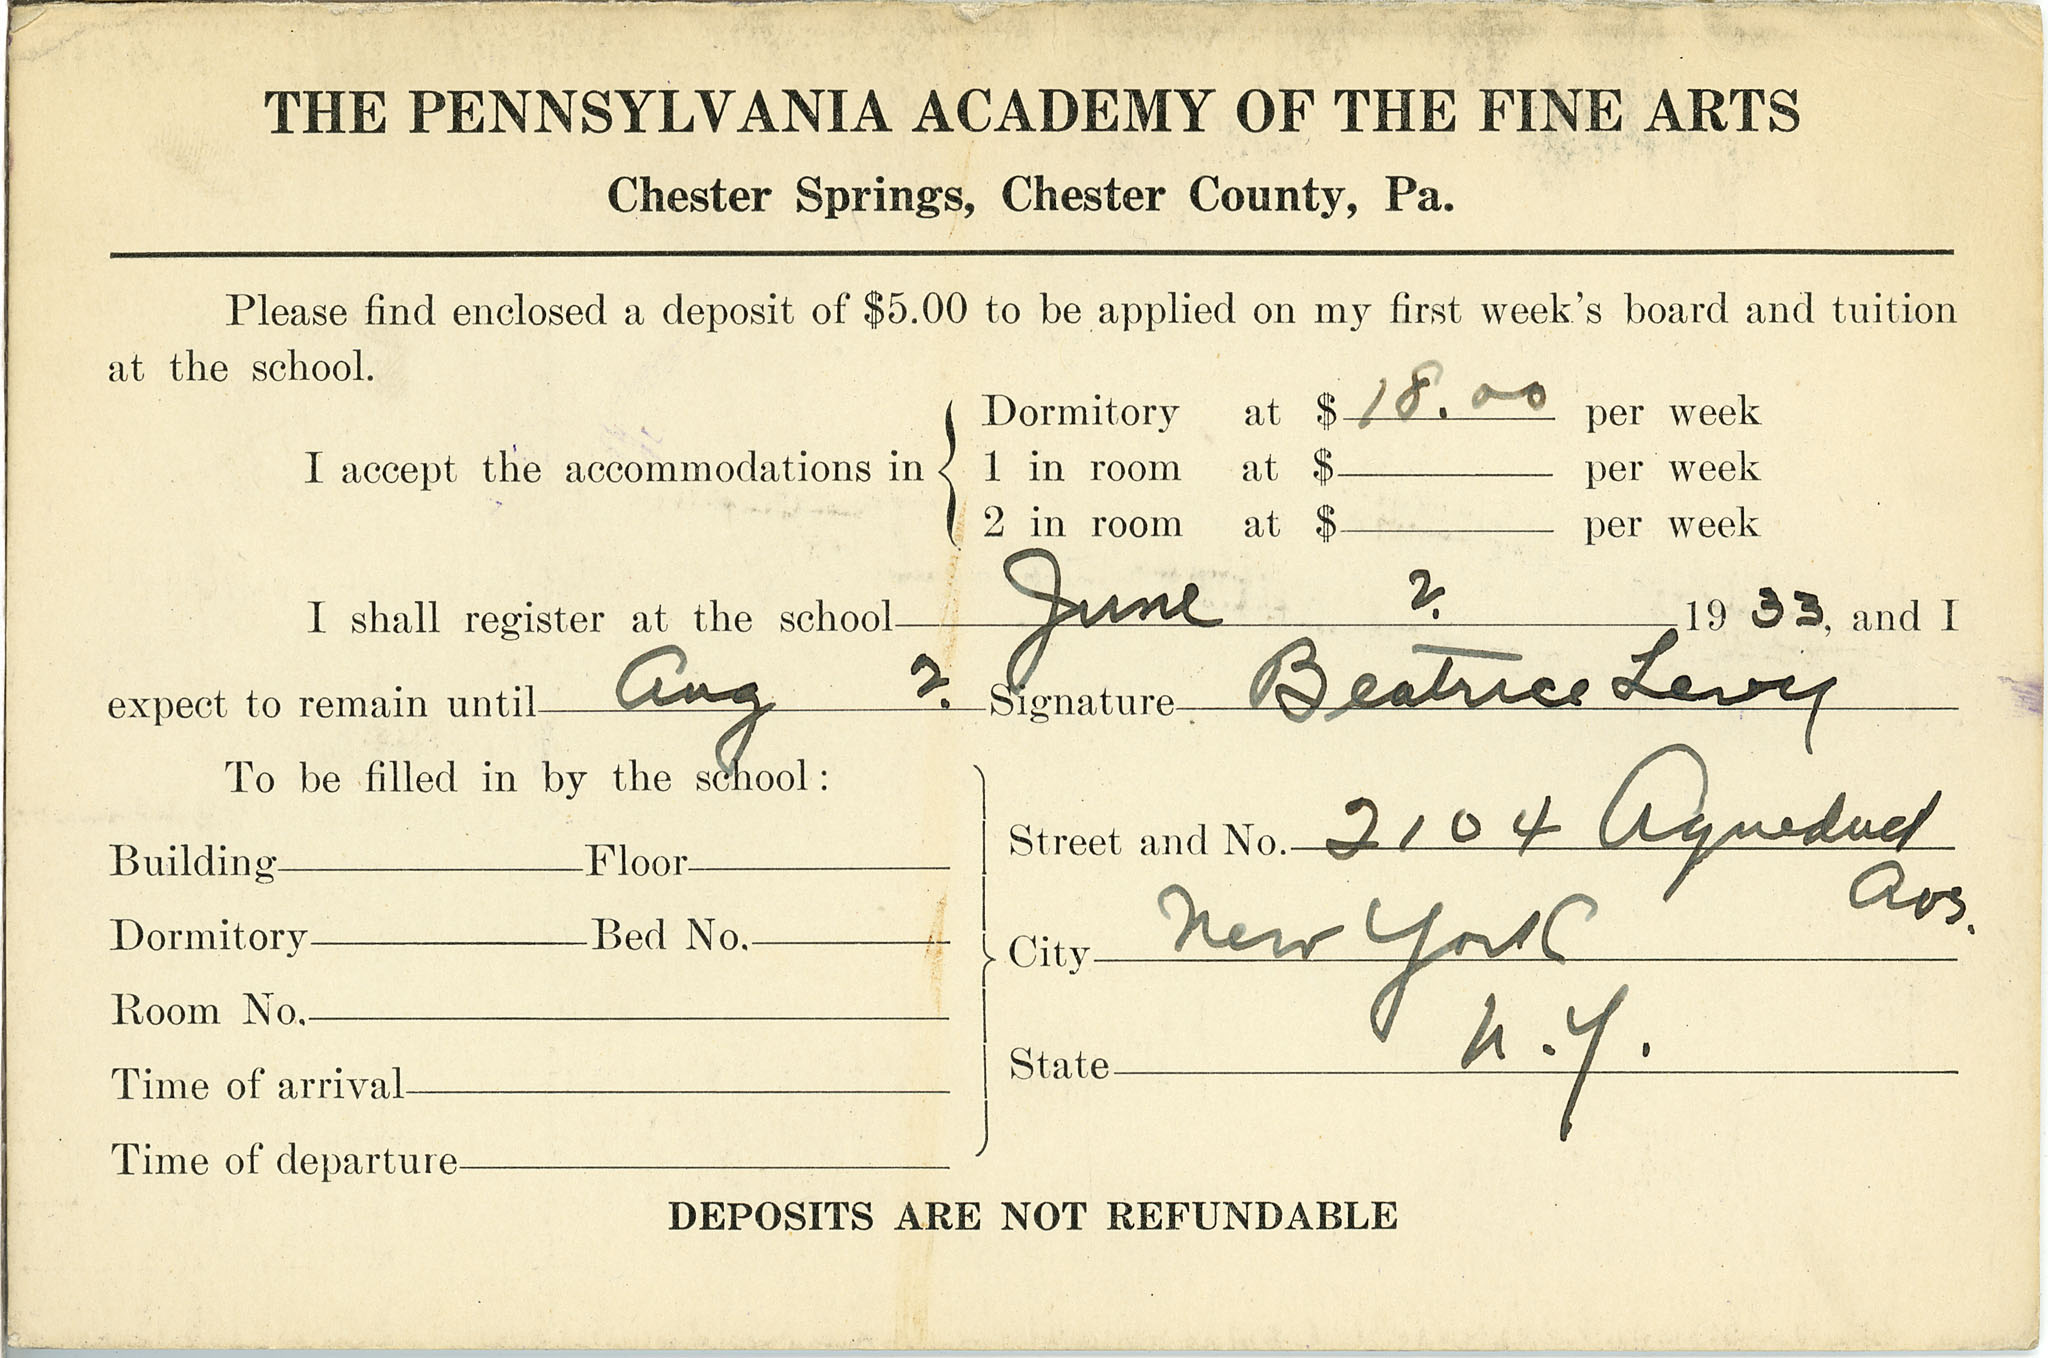 THE PENNSYLVANIA ACADEMY OF THE FINE ARTS
Chester Springs, Chester County, Pa.
Please find enclosed a deposit of $5.00 to be applied on my first week's board and tuition
at the school.
Dormitory at $ 18.00 per week
I accept the accommodations in 1 in room at $ per week
2 in room at $ per week
I shall register at the school June ? 1933, and I
expect to remain until Aug ? Signature Beatrice Levy
To be filled in by the school:
Building Floor
Dormitory Bed No.
Room No.
Time of arrival
Time of departure
Street and No. 2104 Aqueduct
Ave.
City New York
State N.Y.
DEPOSITS ARE NOT REFUNDABLE